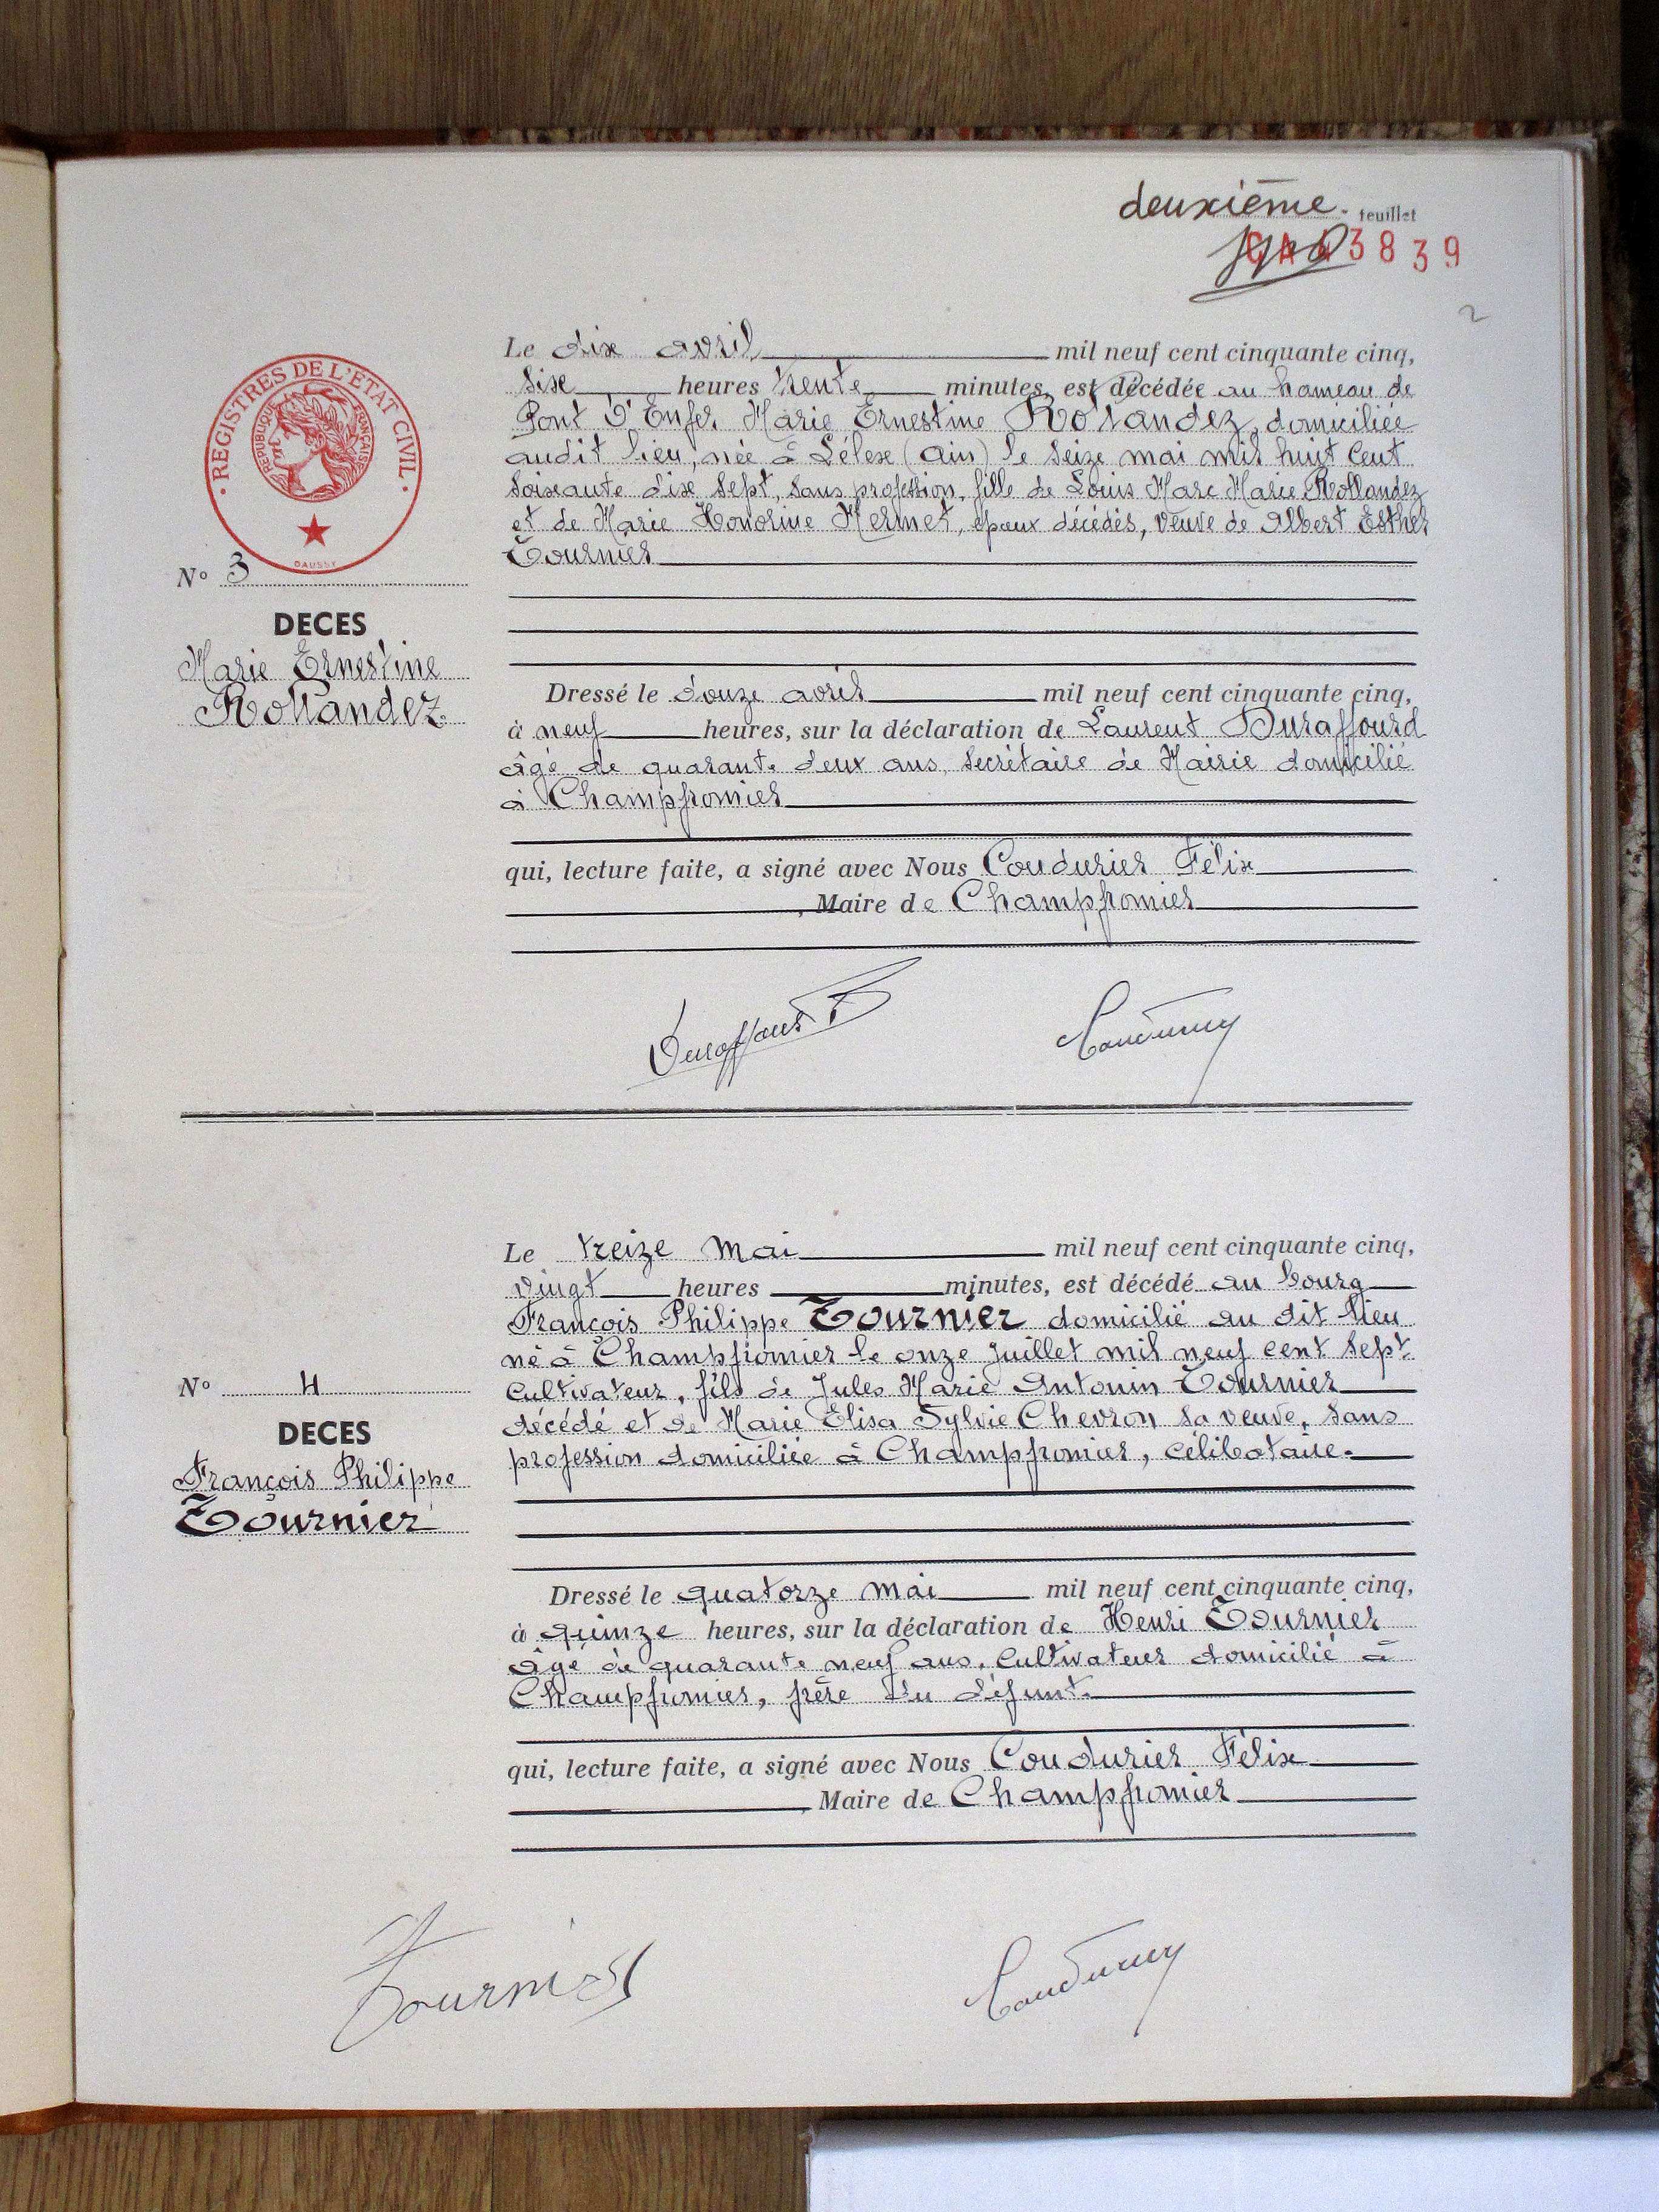 deuxième feuillet
3839
2
Le dix avril mil neuf cent cinquante cinq,
six heures trente minutes, est décédée au hameau de
Pont d'Enfer, Marie Ernestine Rollandez, domiciliée
audit lieu, née à Lélex (Ain) le seize mai mil huit cent
soixante dix sept, sans profession, fille de Louis Marc Marie Rollandez
et de Marie Honorine Mermet, épaux décédés, veuve de Albert Esther
Tournier
REGISTRES DE L'ETAT CIVIL
REPUBLIQUE FRANCAISE
DAUSSY
No 3
DECES
Marie Ernestine
Rollandez
Dressé le douze avril mil neuf cent cinquante cinq,
à neuf heures, sur la déclaration de Laurent Duraffourd
âgé de quarante deux ans, secrétaire de Mairie domicilié
à Champfromier
qui, lecture faite, a signé avec Nous Coudurier Félix
, Maire de Champfromier
Duraffourd
Coudurier
Le treize mai mil neuf cent cinquante cinq,
vingt heures minutes, est décédé au bourg
François Philippe Tournier domicilié au dit lieu
né à Champfromier le onze juillet mil neuf cent sept
cultivateur, fils de Jules Marie Antonin Tournier
décédé et de Marie Elisa Sylvie Chevron sa veuve, sans
profession domiciliée à Champfromier, célibataire.
No 4
DECES
François Philippe
Tournier
Dressé le quatorze mai mil neuf cent cinquante cinq,
à quinze heures, sur la déclaration de Henri Tournier
âgé de quarante neuf ans, cultivateur domicilié à
Champfromier, frère du défunt.
qui, lecture faite, a signé avec Nous Coudurier Félix
Maire de Champfromier
Tournier
Coudurier